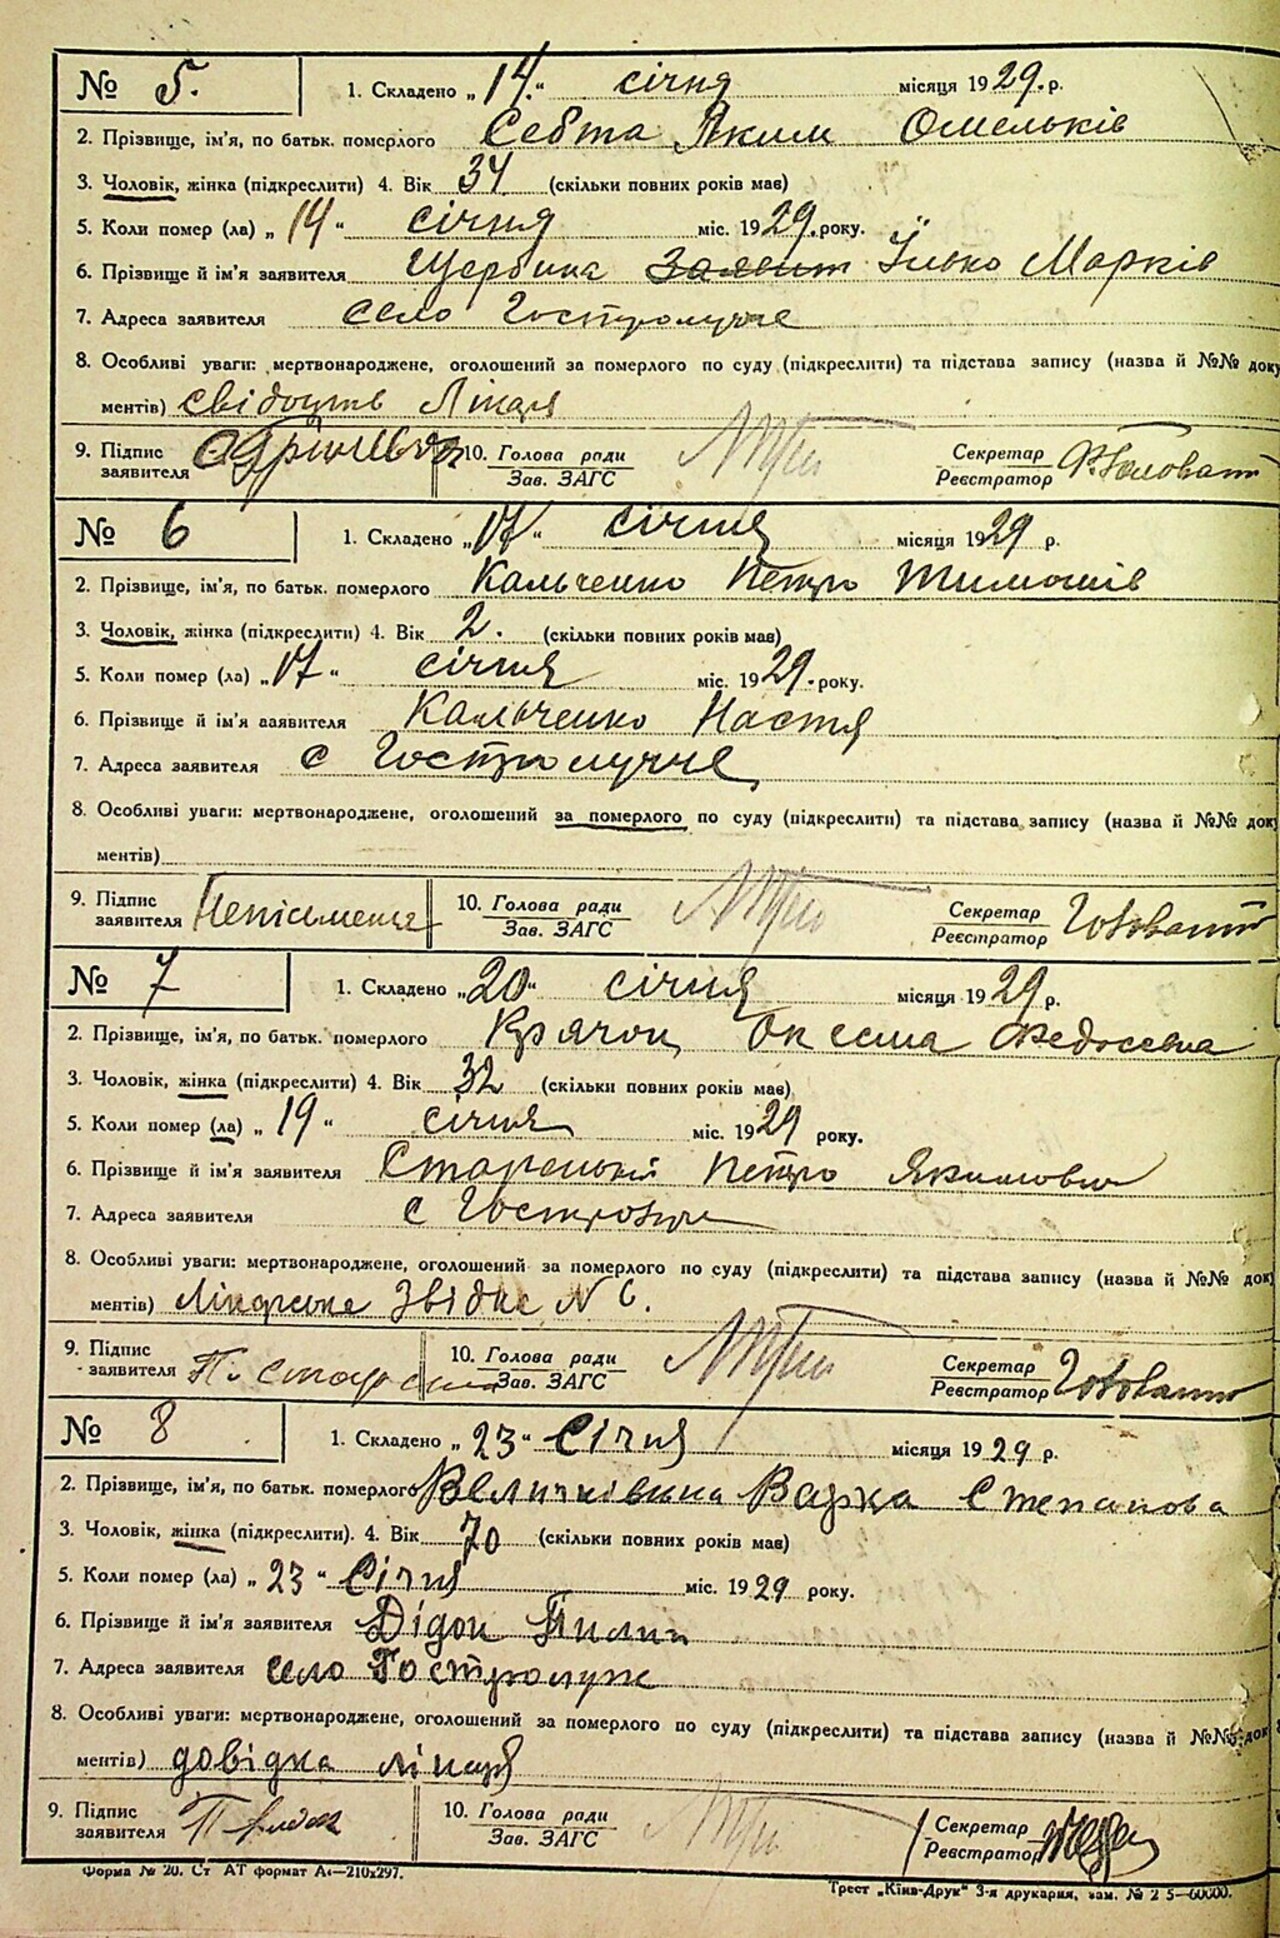 № 5. 1. Складено „14.“ січня місяця 1929. р.
2. Прізвище, ім'я, по батьк. померлого Себта Яким Омельків
3. Чоловік, жінка (підкреслити) 4. Вік 34 (скільки повних років має)
5. Коли помер (ла) „14“ січня міс. 1929. року.
6. Прізвище й ім'я заявителя Щербина Ілько Марків
7. Адреса заявителя село Гостролучче
8. Особливі уваги: мертвонароджене, оголошений за померлого по суду (підкреслити) та підстава запису (назва й №№ доку
ментів) свідоцтв Лікаря
9. Підпис заявителя 10. Голова ради Зав. ЗАГС Секретар Реєстратор
№ 6 1. Складено „17“ січня місяця 1929 р.
2. Прізвище, ім'я, по батьк. померлого Кальченко Петро Тимошів
3. Чоловік, жінка (підкреслити) 4. Вік 2. (скільки повних років має)
5. Коли помер (ла) „17“ січня міс. 1929. року.
6. Прізвище й ім'я заявителя Кальченко Настя
7. Адреса заявителя с Гостролучче
8. Особливі уваги: мертвонароджене, оголошений за померлого по суду (підкреслити) та підстава запису (назва й №№ док
ментів)
9. Підпис заявителя Неписьменна 10. Голова ради Зав. ЗАГС Секретар Реєстратор
№ 7 1. Складено „20“ січня місяця 1929 р.
2. Прізвище, ім'я, по батьк. померлого Крячок Оксана Федосевна
3. Чоловік, жінка (підкреслити) 4. Вік 32 (скільки повних років має)
5. Коли помер (ла) „19“ січня міс. 1929 року.
6. Прізвище й ім'я заявителя Старенький Петро Якимович
7. Адреса заявителя с
8. Особливі уваги: мертвонароджене, оголошений за померлого по суду (підкреслити) та підстава запису (назва й №№ док
ментів) Лікарське N 6.
9. Підпис заявителя 10. Голова ради Зав. ЗАГС Секретар Реєстратор
№ 8 1. Складено „23“ Січня місяця 1929 р.
2. Прізвище, ім'я, по батьк. померлого Величківська Варка Степанова
3. Чоловік, жінка (підкреслити). 4. Вік 70 (скільки повних років має)
5. Коли помер (ла) „23“ Січня міс. 1929 року.
6. Прізвище й ім'я заявителя Дідок Пилип
7. Адреса заявителя село Гостролуче
8. Особливі уваги: мертвонароджене, оголошений за померлого по суду (підкреслити) та підстава запису (назва й №№ док
ментів) довідка лікаря
9. Підпис заявителя 10. Голова ради Зав. ЗАГС Секретар Реєстратор
Форма № 20. Ст АТ формат А4—210х297.
Трест „Київ-Друк“ 3-я друкарня, зам. № 2 5—60000.